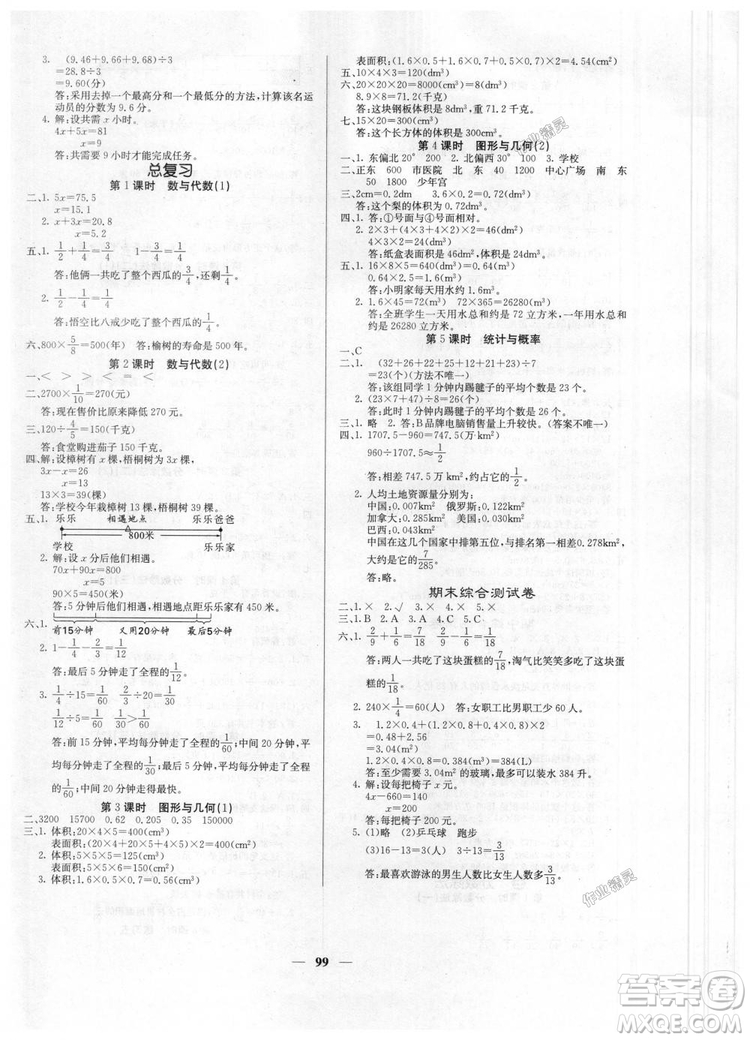 3. (9.46+9.66+9.68)÷3
=28.8÷3
=9.60(分)
答:采用去掉一个最高分和一个最低分的方法,计算该名运
动员的分数为9.6分。
4. 解:设共需x小时。
4x+5x=81
x=9
答:共需要9小时才能完成任务。
总复习
第1课时 数与代数(1)
二、1. 5x=75.5
x=15.1
2. x+3x=20.8
x=5.2
五、1. 1/2+1/4=3/4 1-3/4=1/4
答:他俩一共吃了整个西瓜的3/4,还剩1/4。
2. 1/2-1/4=1/4
答:悟空比八戒少吃了整个西瓜的1/4。
六、800×5/8=500(年) 答:榆树的寿命是500年。
第2课时 数与代数(2)
一、< > > = <
二、2700×1/10=270(元)
答:现在售价比原来降低270元。
三、120÷4/5=150(千克)
答:食堂购进茄子150千克。
四、解:设樟树有x棵,梧桐树3x棵。
3x-x=26
x=13
13×3=39(棵)
答:学校今年栽樟树13棵,梧桐树39棵。
五、1. 乐乐 相遇地点 乐乐爸爸
800米
学校 家
2. 解:设x分钟后他们相遇。
70x+90x=800
x=5
90×5=450(米)
答:5分钟后他们相遇,相遇地点距乐乐家450米。
六、1.
前15分钟 又用20分钟 最后5分钟
2. 1-1/4-2/3=1/12
答:最后5分钟走了全程的1/12。
3. 1/4÷15=1/60 2/3÷20=1/30
1/12÷5=1/60
答:前15分钟,平均每分钟走了全程的1/60,中间20分钟,
平均每分钟走了全程的1/30,最后5分钟平均每分钟走了
全程的1/60。
第3课时 图形与几何(1)
二、3200 15700 0.62 0.205 0.35 150000
三、1. 体积:20×4×5=400(cm³)
表面积:(20×4+20×5+4×5)×2=400(cm²)
2. 体积:5×5×5=125(cm³)
表面积:5×5×6=150(cm²)
3. 体积:1.6×0.5×0.7=0.56(m³)
表面积:(1.6×0.5+1.6×0.7+0.5×0.7)×2=4.54(m²)
五、10×4×3=120(dm³)
六、20×20×20=8000(cm³)=8(dm³)
8.9×8=71.2(千克)
答:这块钢板体积是8dm³,重71.2千克。
七、15×10×2=300(cm³)
答:这个长方体的体积是300cm³。
第4课时 图形与几何(2)
一、1. 东偏北20° 2. 北偏西30° 3. 学校
二、正东 600 市医院 北 东 40 1200 中心广场 南 东
50 1800 少年宫
三、2cm=0.2dm 3.6×0.2=0.72(dm³)
答:这个梨的体积是0.72dm³。
四、1. 答:①号面与④号面相对。
2. (2×3+4×2+4×3)×2=52(cm²)
4×3×2=24(cm³)
答:纸盒表面积是52cm²,体积是24cm³。
五、1. 16×8×5=640(dm³)=0.64(m³)
0.64×2.5=1.6(m³)
答:小明家每天用水约1.6m³。
2. 1.6×45=72(m³) 72×365=26280(m³)
答:全班学生一天用水总和约是72立方米,一年用水总
和约是26280立方米。
第5课时 统计与概率
一、C
二、1. (32+26+22+25+23+21+12)÷7
=23(个)(方法不唯一)
答:该组同学1分钟内踢毽子的平均个数是23个。
2. (23×7+47)÷8=26(个)
答:此时1分钟内踢毽子的平均个数是26个。
三、1. 略 2. 答:B品牌电脑销售量上升较快。(答案不唯一)
四、1. 1707.5-960=747.5(万km²)
960÷1707.5≈1/2
答:相差747.5万km²,约占它的1/2。
2. 人均土地资源量分别为:
中国:0.007km² 俄罗斯:0.120km²
加拿大:0.285km² 美国:0.030km²
巴西:0.045km²
答:中国在这几个国家中排第五位,与第一位相差0.278km²,
约占它的7/285。
3. 答:略。
期末综合测试卷
二、1. × 2. √ 3. × 4. × 5. ×
三、1. B 2. A 3. A 4. C 5. C
六、1. 2/9+1/6=7/18 2/9-1/6=1/18
答:两人一共吃了这块蛋糕的7/18,淘气比笑笑多吃了这块蛋
糕的1/18。
2. 240×1/4=60(人) 答:女职工比男职工少60人。
3. 1.2×0.4+(1.2×0.8+0.4×0.8)×2
=0.48+2.56
=3.04(m²)
1.2×0.4×0.8=0.384(m³)=384(L)
答:至少需要3.04平方米的玻璃,最多可以装水384升。
4. 解:设每把椅子x元。
4x-660=x-60
x=200
答:每把椅子200元。
5. (1)略 (2)乒乓球 跑步
(3)16-13=3(人) 3÷13=3/13
答:最喜欢游泳的男生人数比女生人数多3/13。
99
作业精灵
作业精灵
答案圈
MXQE.COM